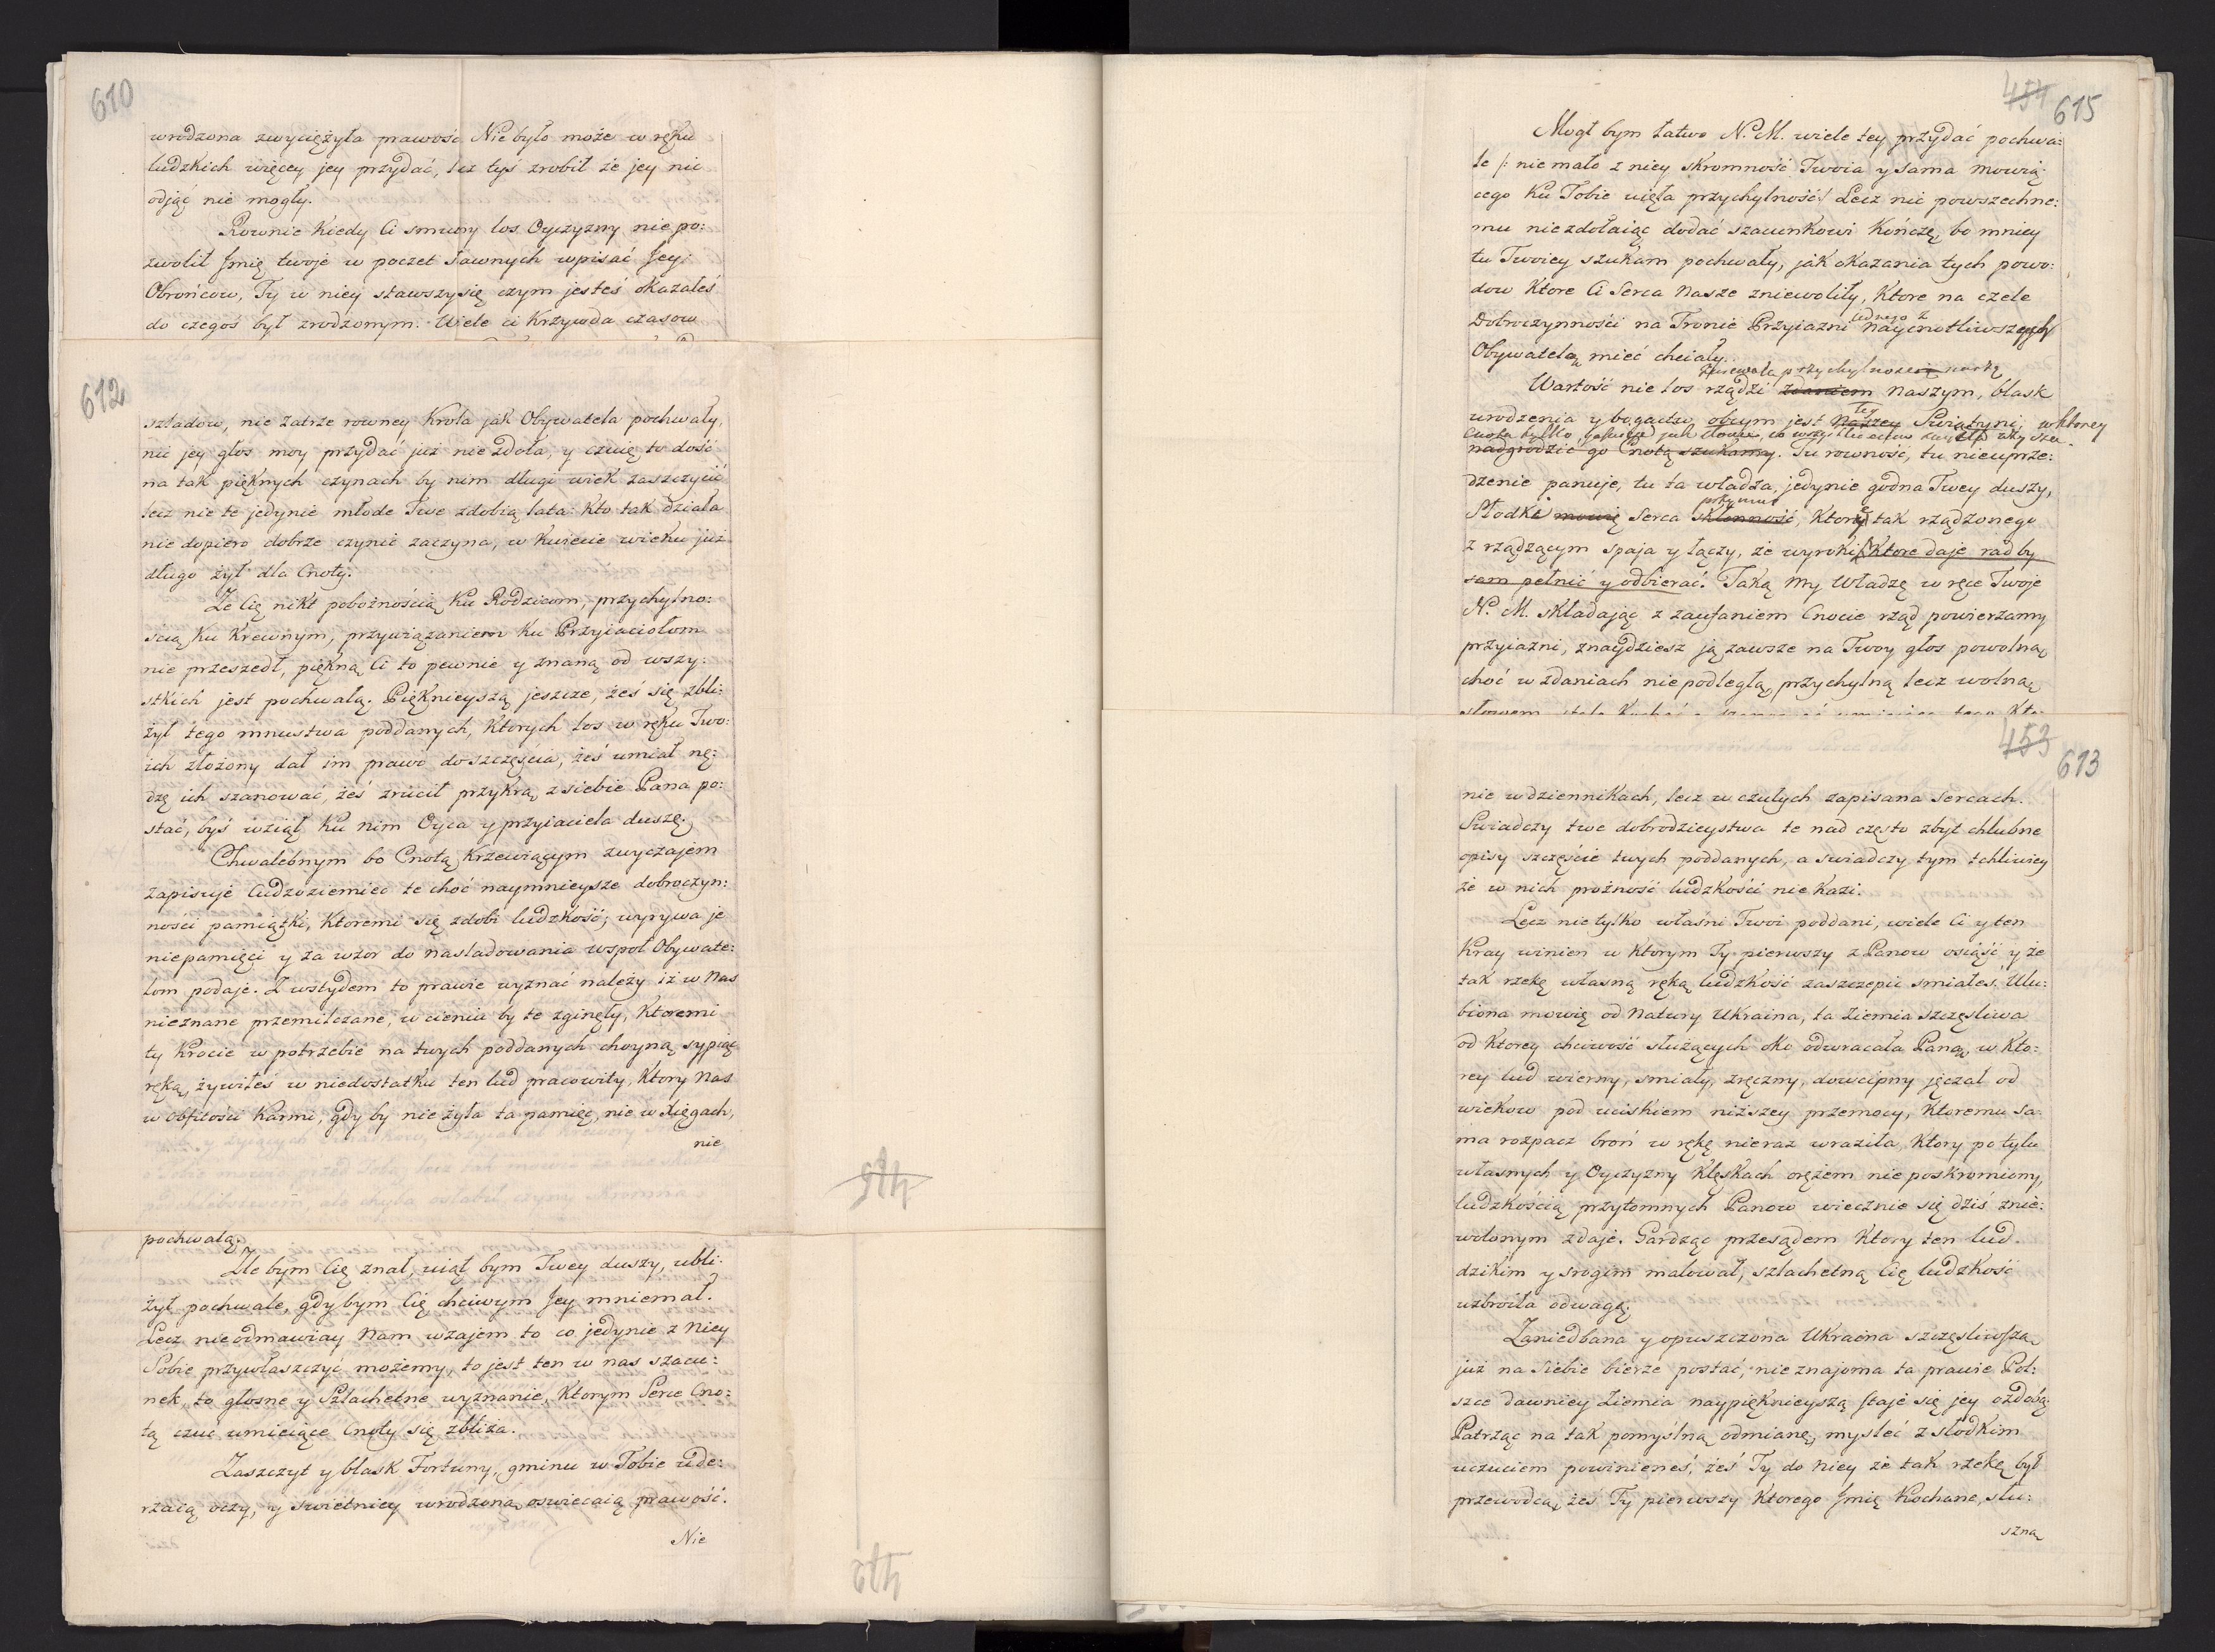 610
wrodzona zwyciężyła prawość Nie było może w ręku
ludzkich więcey jey przydać, lecz tyś zrobił że jey nic
odjąć nie mogły.
Rownie kiedy Ci smutny los Oyczyzny nie po:
zwolił Jmię twoje w poczet sławnych wpisać Jey
Obrońcow, Ty w niey stawszy się czym jesteś okazałeś
do czegoś był zrodzonym. Wiele ci Krzywda czasow
612
szladow, nie zatrze rowney Krola jak Obywatela pochwały,
nic jey głos moy przydać już nie zdoła, y czuię, to dość
na tak pięknych czynach by nim długi wiek zaszczycić
lecz nie te jedynie młode Twe zdobią lata. Kto tak działa
nie dopiero dobrze czynić zaczyna, w kwiecie wieku już
długo żył dla Cnoty.
Że Cię nikt pobożnością ku Rodzicom, przychylno:
ścią ku Krewnym, przywiązaniem ku Przyiaciołom
nie przeszedł, piękną Ci to pewnie y znaną od wszy:
stkich jest pochwałą. Pięknieyszą jeszcze, żeś się zbli:
żył tego mnustwa poddanych, Ktorych los w ręku Two:
ich złożony dał im prawo do szczęścia, żeś umiał nę:
dzę ich szanować, żeś zrucił przykrą z siebie Pana po:
stać, byś wziął ku nim Oyca y przyiaciela duszę.
Chwalebnym bo Cnotą Krzewiącym zwyczajem
zapisuje Cudzoziemiec te choć naymnieysze dobroczyn:
ności pamiątki, Ktoremi się zdobi ludzkość; wyrywa je
niepamięci y za wzor do nasladowania wspoł Obywate:
lom podaje. Z wstydem to prawie wyznać należy iż w Nas
nieznane przemilczane, w cieniu by te zginęły, Ktoremi
ty Krocie w potrzebie na twych poddanych choyną sypiąc
ręką, żywiłeś w niedostatku ten lud pracowity, Ktory Nas
w obfitości Karmi, gdy by nie żyła ta pamięć, nie w Xięgach,
nie
pochwałą.
Zle bym Cię znał, uiął bym Twey duszy, ubli:
żył pochwale, gdy bym Cię chciwym Jey mniemał.
Lecz nie odmawiay Nam wzajem to co jedynie z Niey
Sobie przywłaszczyć możemy, to jest ten w nas szacu:
nek, to głośne y Szlachetne wyznanie, Ktorym Serce Cno:
tą czuć umieiące Cnoty się zbliża.
Zaszczyt y blask Fortuny, gminu w Tobie ude:
rzaią oczy, y swietniey wrodzoną oswiecaią prawość.
Nie
454 615
Mogł bym łatwo N. M. wiele tey przydać pochwa:
le /: nie mało z niey skromność Twoia y sama mowią
cego Ku Tobie uięła przychylność/ Lecz nic powszechne:
mu niezdołaiąc dodać szacunkowi Kończę, bo mniey
tu Twoiey szukam pochwały, jak okazania tych powo:
dow Ktore Ci Serca Nasze zniewoliły, Ktore na czele
jednego z
Dobroczynności na Tronie Przyiazni Naycnotliwszych
Obywatela mieć chciały.
Wartość nie los rządzi zdaniem naszym, blask
urodzenia y bogactw obcym jest Naszey tey Swiątyni, wktorey
nadgrodzić go Cnotą szukamy. Tu rowność, tu nieuprze:
dzenie panuje, tu ta władza, jedynie godna Twey duszy,
przymus
Słodki mowię Serca skłonność, Ktory tak rządzonego
z rządzącym spaja y łączy, że wyroki Ktore daje rad by
sam pełnić y odbierać. Taką my Władzę w ręce Twoje
N. M. składając z zaufaniem Cnocie rząd powierzamy
przyiazni, znaydziesz ją zawsze na Twoy głos powolną,
choć w zdaniach niepodległą, przychylną lecz wolną,
453 613
nie w dziennikach, lecz w czułych zapisana sercach.
Swiadczy twe dobrodzieystwa te nad często zbyt chlubne
opisy szczęście twych poddanych, a swiadczy tym tchliwiey
że w nich prożność ludzkości nie Kazi.
Lecz nie tylko właśni Twoi poddani, wiele Ci y ten
Kray winien w Ktorym Ty pierwszy z Panow osiąść y że
tak rzekę własną ręką ludzkość zaszczepić smiałeś. Ulu:
biona mowię od Natury Ukraina, ta Ziemia szczęsliwa
od Ktorey chciwość służących oko odwracała Pana, w Kto:
rey lud wierny, smiały, zręczny, dowcipny jęczał od
wiekow pod uciskiem niższey przemocy, Ktoremu sa:
ma rozpacz broń w rękę nieraz wraziła, Ktory po tylu
własnych y Oyczyzny Klęskach orężem nie poskromiony,
ludzkością przytomnych Panow wiecznie się dziś znie:
wolonym zdaje. Gardząc przesądem Ktory ten lud
dzikim y srogim malował, szlachetną Cię ludzkość
uzbroiła odwagą.
Zaniedbana y opuszczona Ukraina szczęsliwszą
już na Siebie bierze postać, nieznajoma ta prawie Pol:
szce dawniey Ziemia naypięknieyszą staje się jey ozdobą.
Patrząc na tak pomyślną odmianę, mysleć z słodkim
uczuciem powinieneś, żeś Ty do Niey że tak rzekę był
przewodcą, żeś Ty pierwszy Ktorego Jmię Kochane, słu:
szną